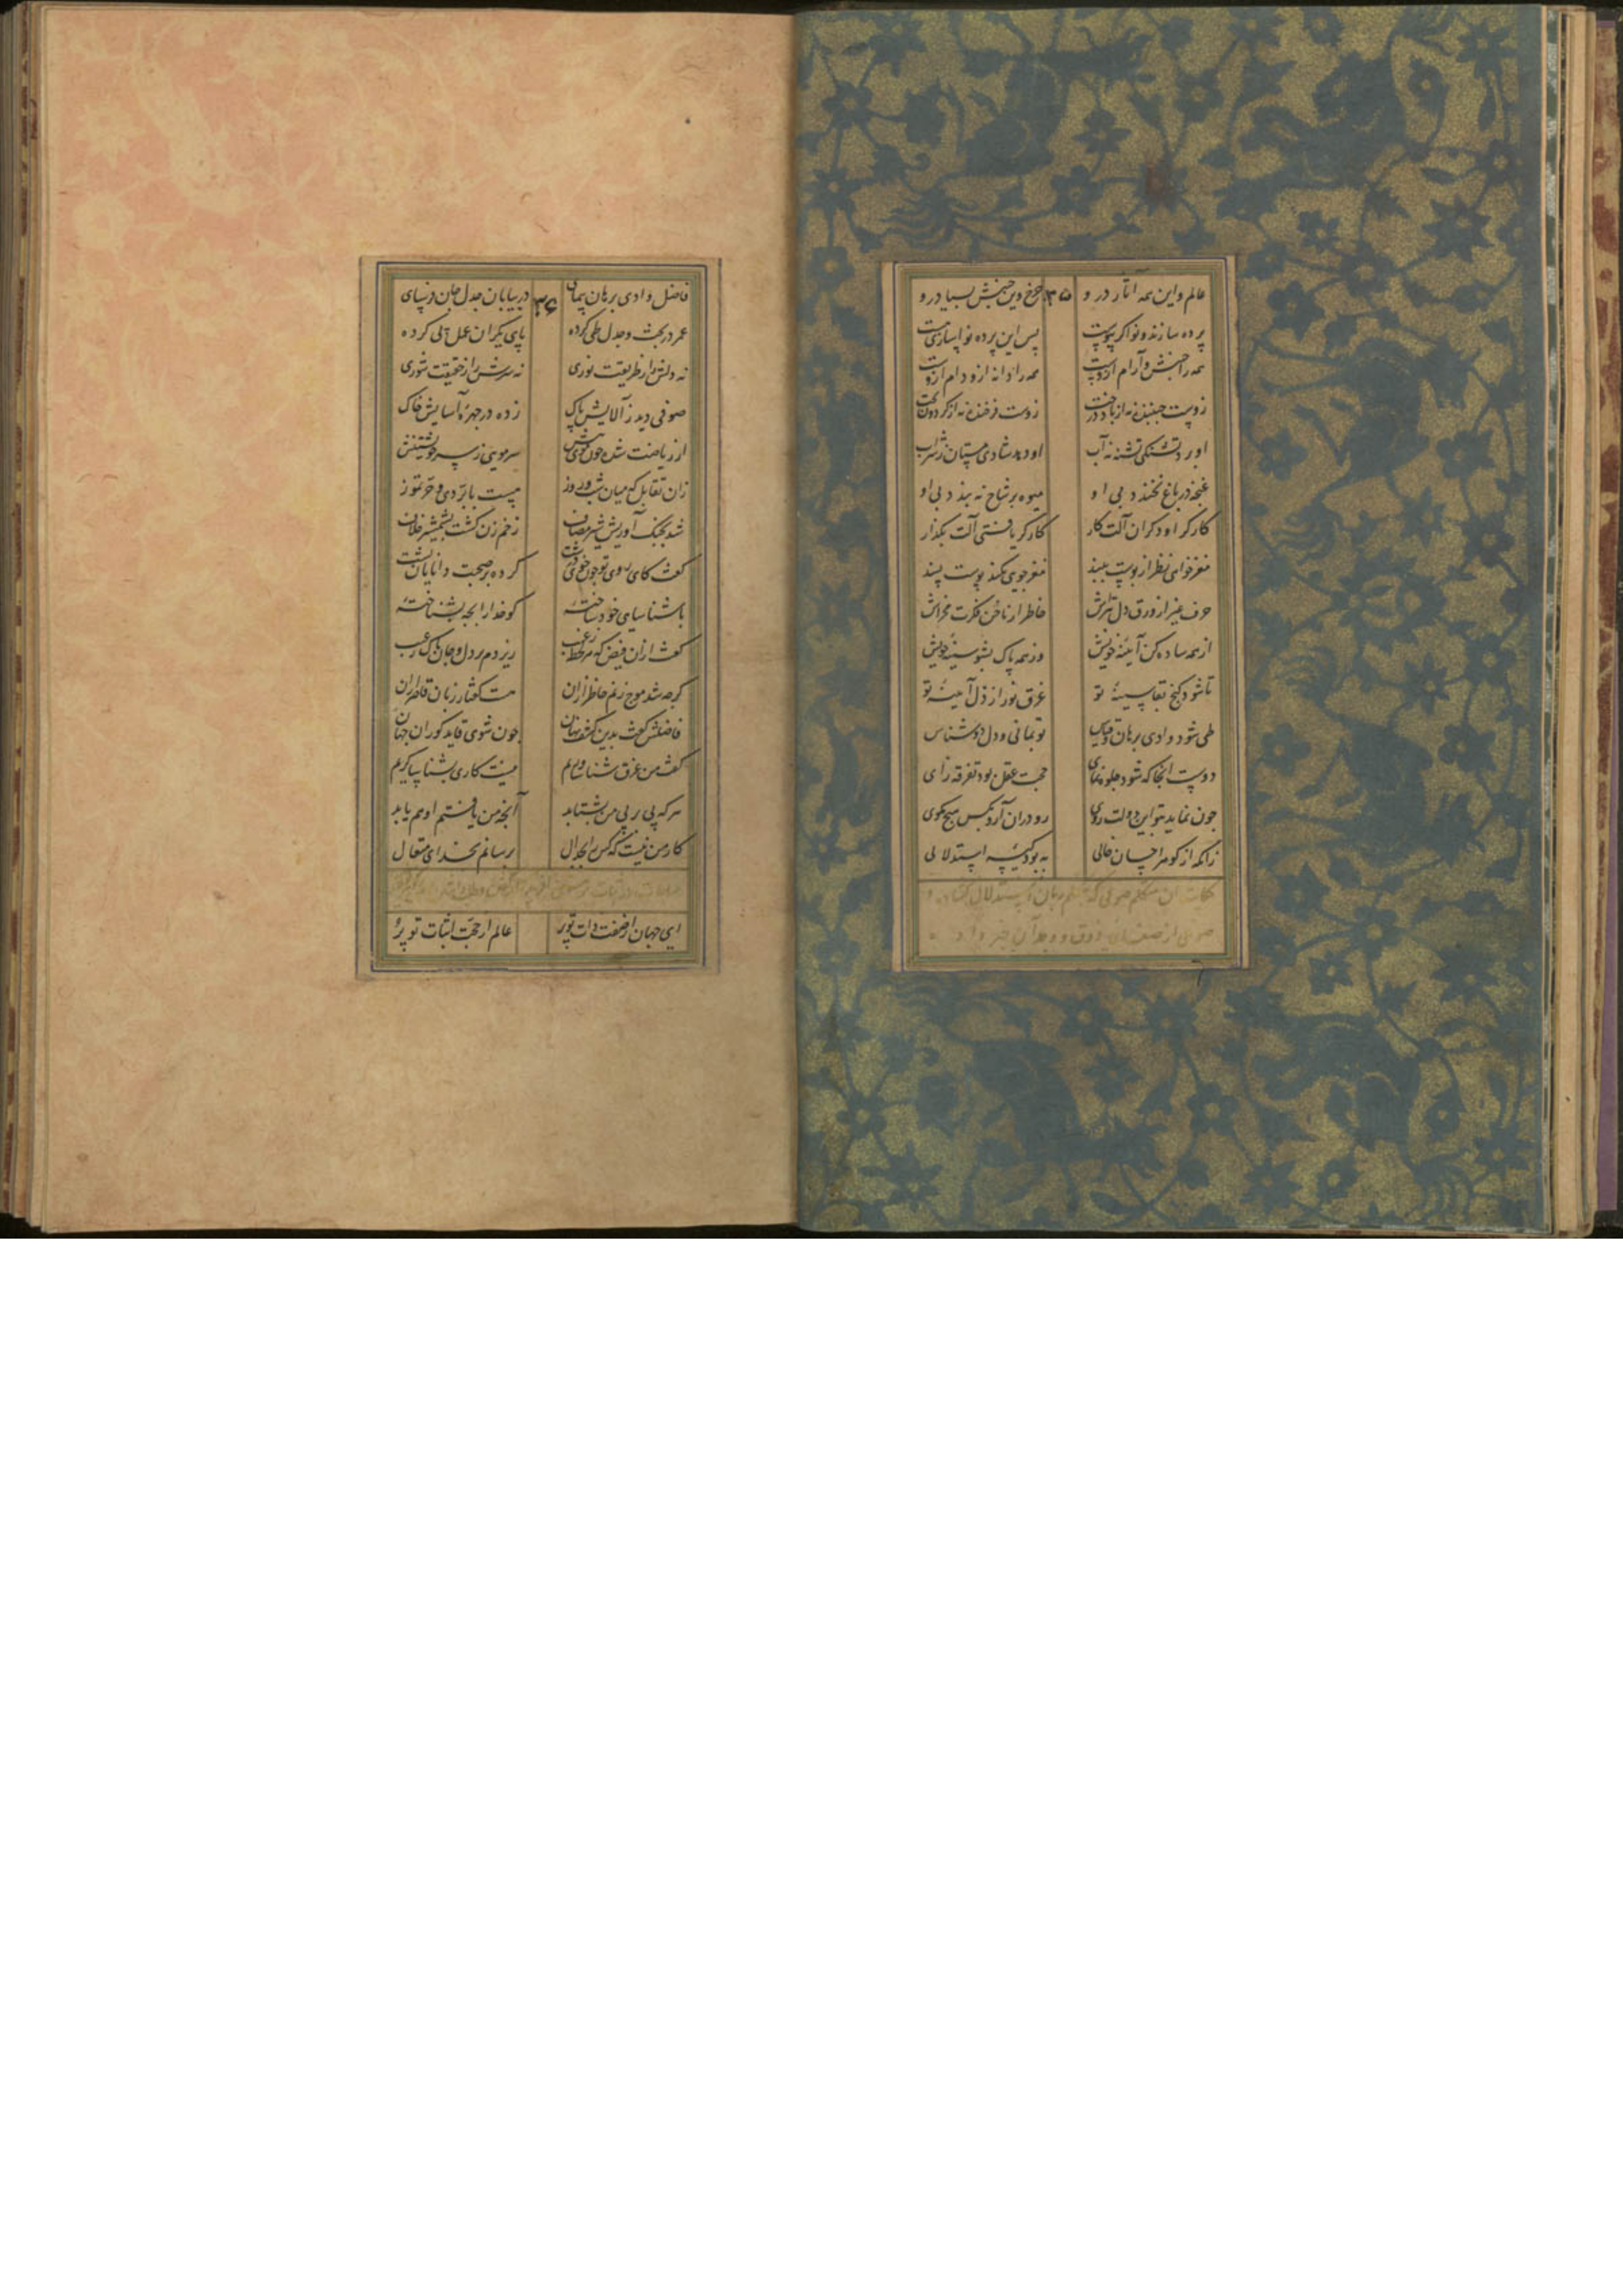 عالم و این همه آثار در و ۳۵ چرخ وین جنبش بسیار در و
پرده سازند و نواگر پیوست پس این پرده نواسازی هست
همه را جنبش و آرام ازوست همه را دانه ازو دام ازوست
زوست جنبنده نه از باد درخت زوست فرخنده نه از گردون بخت
او برد تشنگی تشنه نه آب او دهد شادی مستان نه شراب
غنچه در باغ نخندد بی او میوه بر شاخ نه بندد بی او
کارگر اوست دکران آلت کار کارگر یافتی آلت بگذار
مغز خواهی نظر از پوست ببند مغز جوی نکند پوست پسند
حرف غیر از ورق دل بتراش خاطر از ناخن فکرت مخراش
از همه ساده کن آیینه خویش وز همه پاک بشو سینه خویش
تا شود گنج بقا سینه تو غرق نور ازل آیینه تو
طی شود وادی برهان و قیاس تو بمانی و دل دوست شناس
دوست آنجا که شود جلوه نمای حجت عقل بود تفرقه زای
چون نماید بتو این دولت روی رو در آن آر و بکس هیچ مگوی
زانکه از گوهر احسان خالی به بود کیسه استدلالی
حکایت آن متکلم صوفی که بقلم زبان استدلال گشاده و
صوفی از صفای ذوق و وجدان خبر داد
فاضل وادی برهان پیمای ۳۶ در بیابان جدل جان فرسای
عمر در بحث و جدل طی کرده پای یکران عمل پی کرده
نه دلش را ز طریقت نوری نه سرش را ز حقیقت شوری
صوفی دید ز آلایش پاک زده در چهره آسایش خاک
از ریاضت شده چون موی تنش سر مویی ز سر خویشتنش
زان تقابل که میان شب و روز هست با برد دی و حر تموز
شد بجنگ آوریش شیر مصاف زخم زن گشت بشمشیر خلاف
گفت کای روی تو چون خوی تو زشت کرده بر صحبت دانایان پشت
باشناسای خود ساخته گو خدا را بچه بشناخته
گفت ازان فیض که هر لحظه ز غیب ریزدم بر دل و جان پاک ز عیب
گرچه شد موج زنم خاطر ازان هست گفتار زبان قاصر ازان
فاضلش گفت بدین کشف نهان چون شوی قاید کوران جهان
گفت من غرق شناساوریم نیست کاری بشناساگریم
هر که پی بر پی من بشتابد آنچه من یافتم او هم یابد
کار من نیست که کس را بجدال برسانم بخدای متعال
ای جهان از صفت ذات تو پر عالم از حجت اثبات تو پر